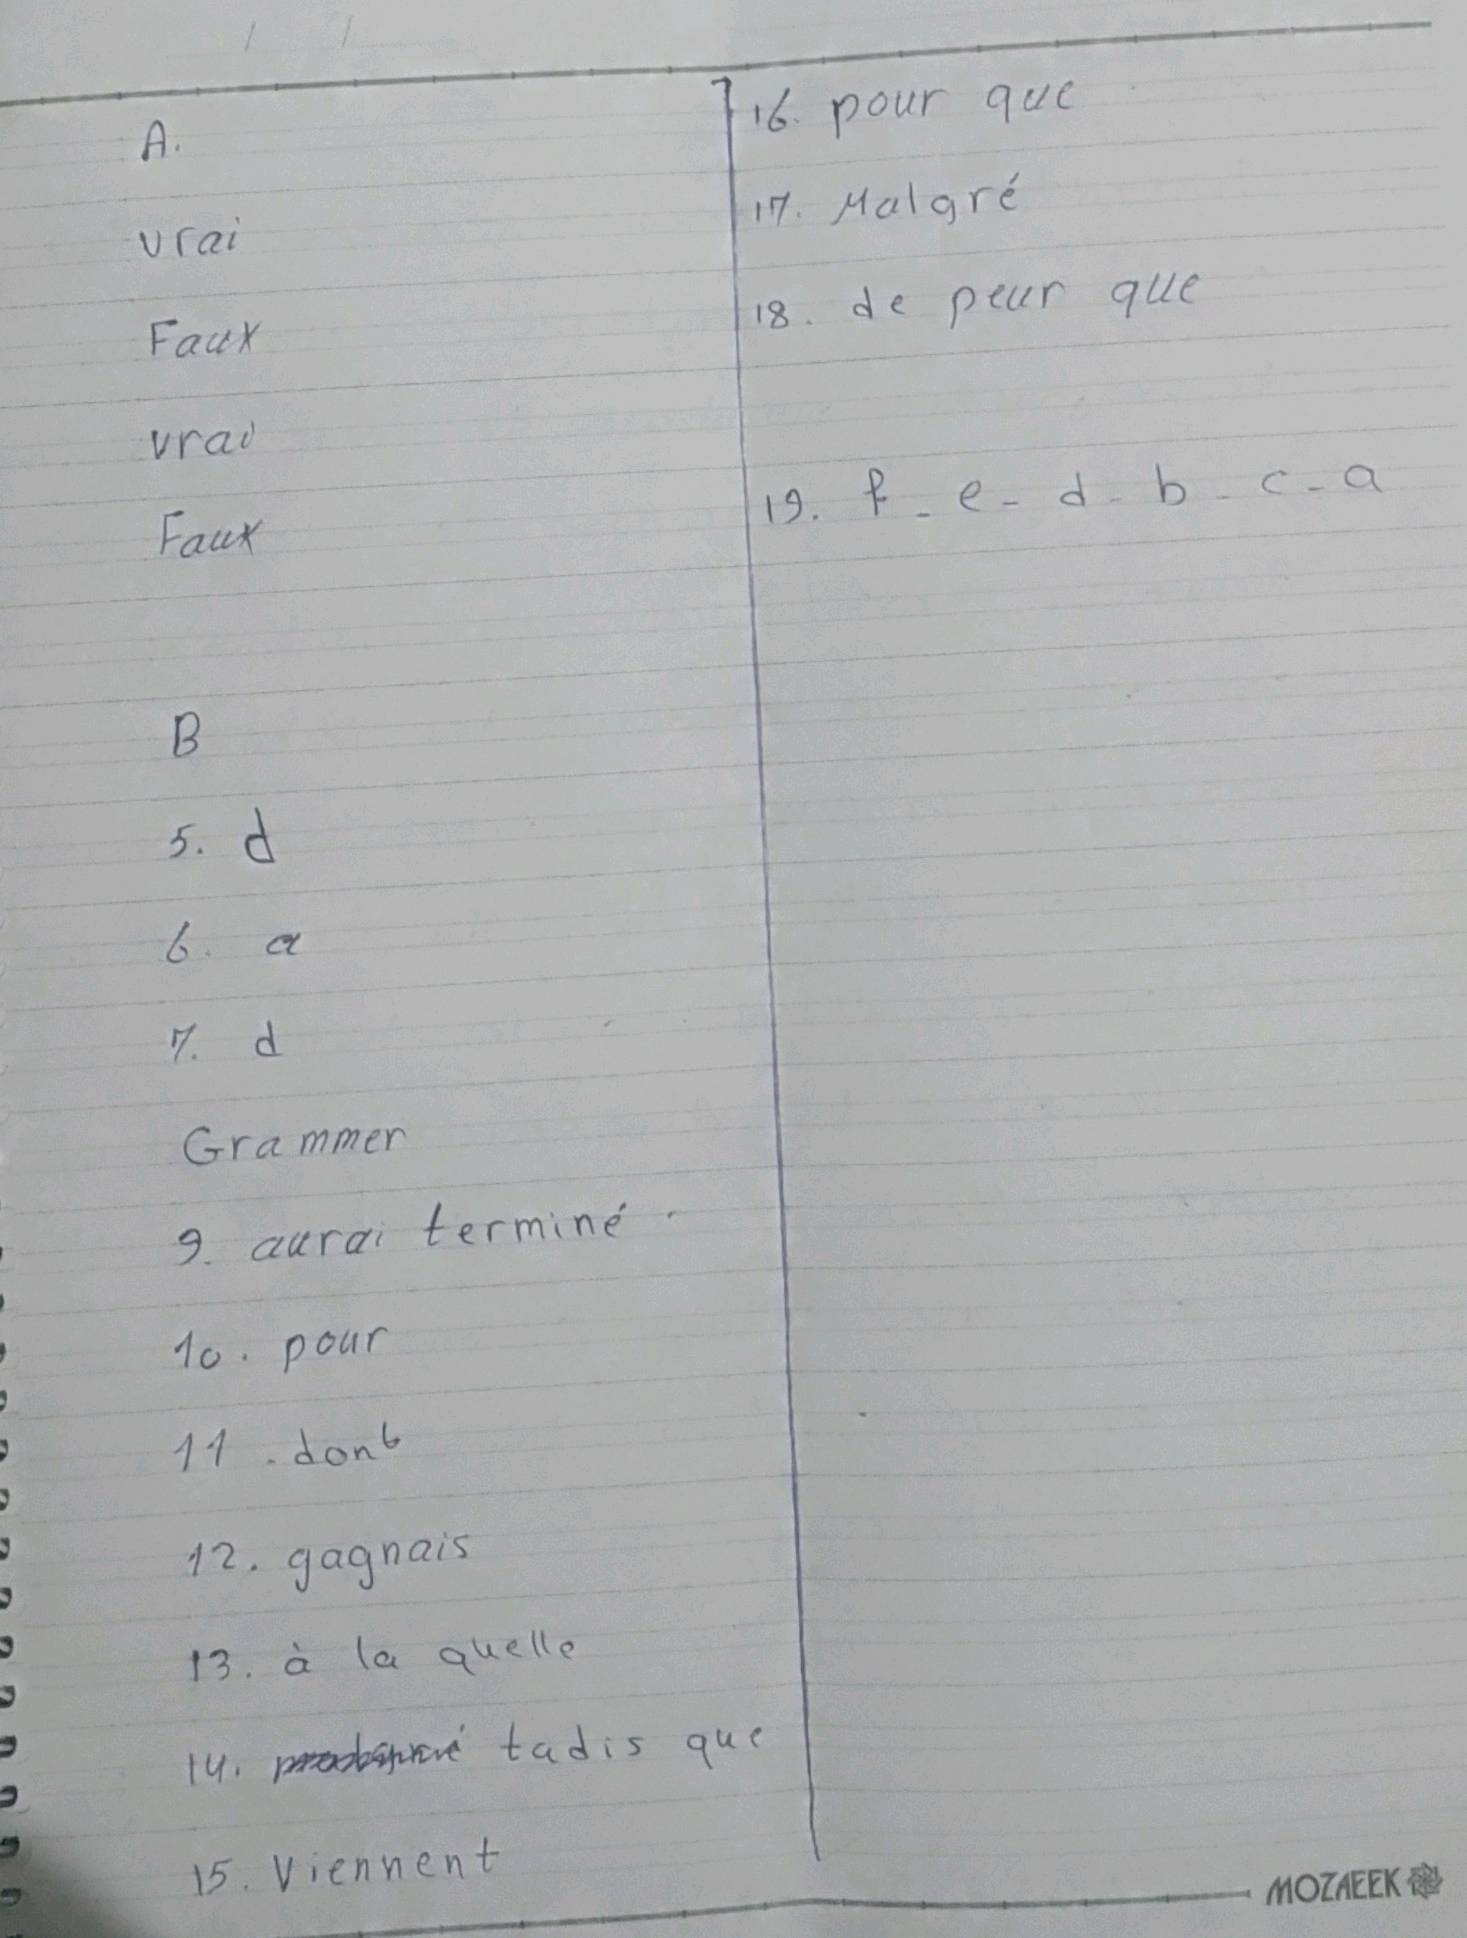 A.
vrai
Faux
vrai
Faux
B
5. d
6. a
7. d
Grammer
9. aurai terminé.
10. pour
11. dont
12. gagnais
13. à la quelle
14. tadis que
15. Viennent
16. pour que
17. Malgré
18. de peur que
19. f - e - d - b - c - a
MOZAEEK